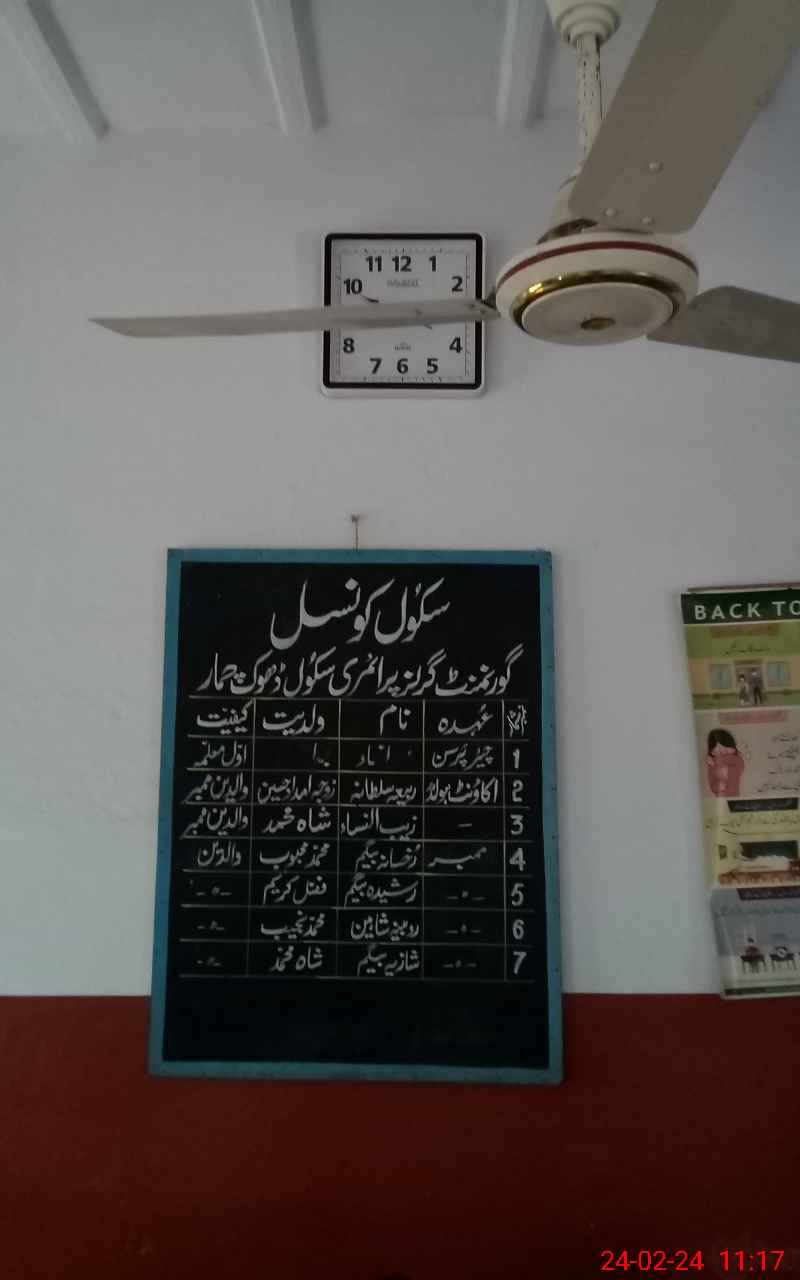 11 12 1
10 2
8 4
7 6 5
سکول کونسل
گورنمنٹ گرلز پرائمری سکول ڈھوک چمار
عہدہ نام ولدیت کیفیت
1 چیئرپرسن اوّل معلمہ
2 اکاؤنٹ ہولڈر ربیعہ سلطانہ زوجہ امداد حسین والدین ممبر
3 - زیب النساء شاہ محمد والدین ممبر
4 ممبر رخسانہ بیگم محمد محبوب والدین
5 -ہ- رشیدہ بیگم فضل کریم -ہ-
6 -ہ- روبینہ شاہین محمد نجیب -ہ-
7 -ہ- شازیہ بیگم شاہ محمد -ہ-
BACK TO
24-02-24 11:17